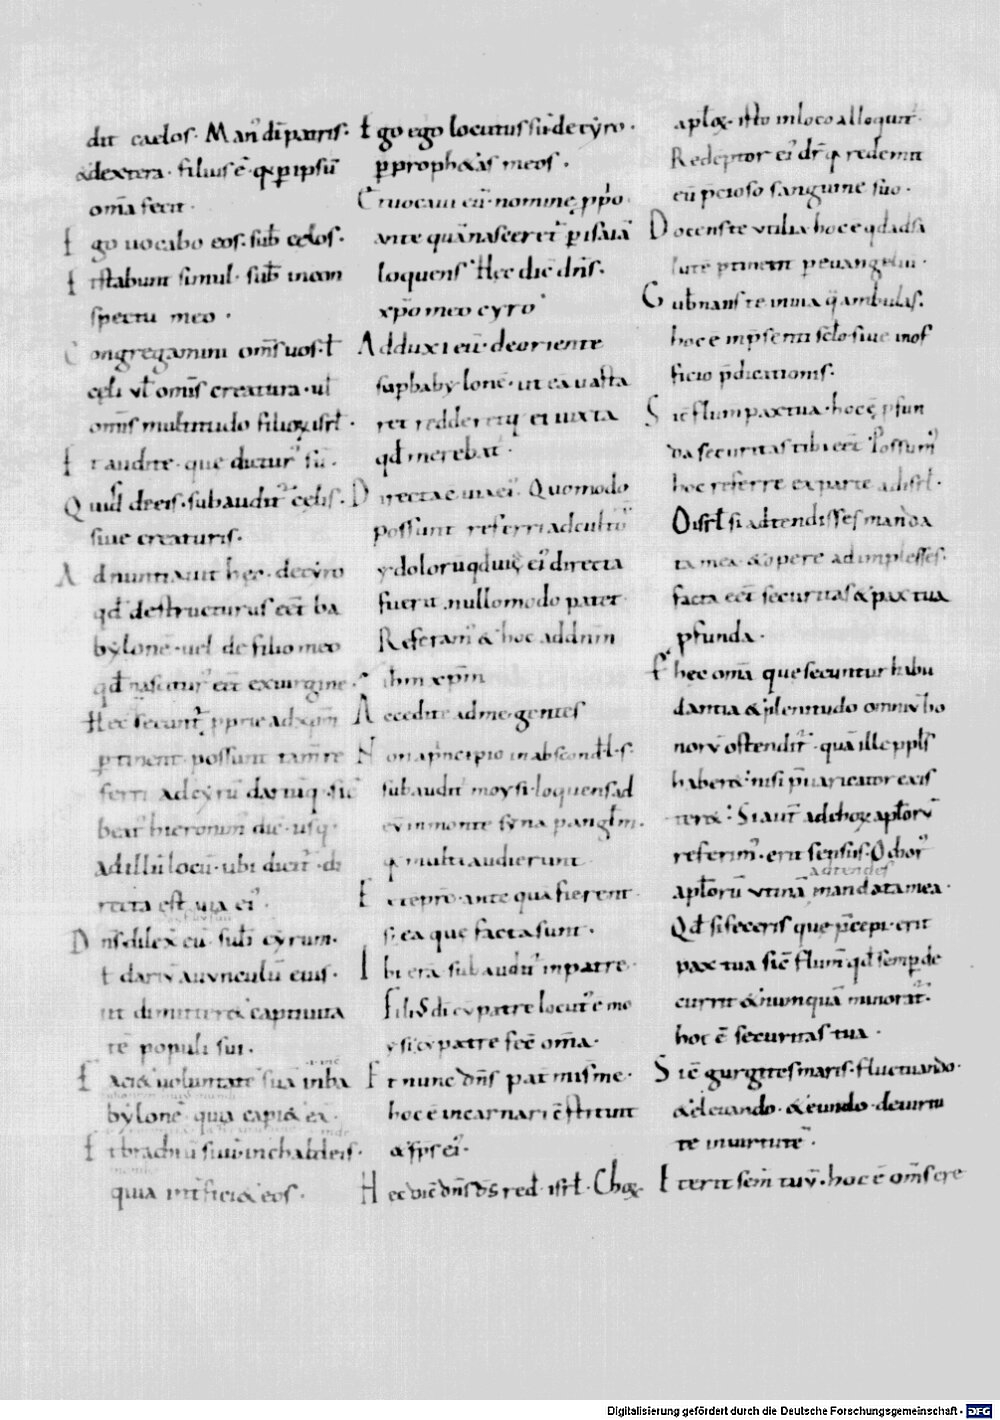 dit caelos. Man᷒ dī patris.
&dextera. filius ē. q̄ p̱ ipsū
om̄a fecit.
Ego uocabo eos. sub̄ cęlos.
Et stabunt simul. sub̄ incon
spectu meo.
Congregamini om̄s uos. ł
cęli vł omīs creatura. uł
omīs multitudo filioꝝ isrł.
Et audite. que dictur᷒ sū.
Quis deeis. subaudit᷒ cęlis.
siue creaturis.
Adnuntiauit hęc. de cyro
qđ destructurus eēt ba
bylonē. uel de filio meo
qđ nasciturus eēt ex uirgine.
Hęc secunt᷒ pprie ad xp̄m
p̱tinent. possunt tam̄ re
ferri ad cyrū dariūq. sic̄
beat᷒ hieronim᷒ dic̄. usq.
ad illū locū. ubi dicit᷒. di
recta est uia ei᷒.
Dn̄s dilex̄ eū. sub̄ cyrum.
ł dariū auunculū eius.
ut dimitter& captiuita
tē populi sui.
Faci& uoluntatē suā in ba
bylonē. quia capi& eā.
Et brachiū suū in chaldeis.
quia int̄fici& eos.
Ego ego locutus sū. de cyro.
p̱ proph&as meos.
Et uocaui eū. nomine pp̱o
ante quā nascer&. p̱ isaiā
loquens. Hęc dic̄ dn̄s.
xp̄o meo cyro
Adduxi eū. de oriente
sup̱ babylonē. ut eā uasta
ret redderetq. ei iuxta
qđ merebat᷒.
Directa ē uia ei᷒. Quomodo
possunt referri ad cultū
ydolorū qđ uię ei᷒ directa
fuerit. nullo modo patet.
Referam᷒ & hoc ad dn̄m
ih̄m xp̄m
Accedite ad me. gentes
Non a p̄ncipio in abscond̄. ł. s.
subaudit᷒ moysi. loquens ad
eū in monte syna p angłm.
q̄ multi audierunt
Ex tēpre. ante quā fierent.
s. ea que facta sunt.
Ibi erā. subaudit᷒ in patre.
Filius dī cū patre locut᷒ ē mo
ysi. cū patre fec̄ om̄a.
Et nunc dn̄s pat̄ misit me.
hoc ē incarnari cōstituit
& sp̄s ei᷒.
Hęc dic̄ dn̄s dς red̄. isrł. Choꝝ
apłoꝝ. isto in loco alloquit᷒.
Redēptor ei᷒ dr̄. q̄ redemit
eū p̄cioso sanguine suo.
Docens te vtilia hoc ē qđ ad sa
lutē p̱tinent p euangeliū.
Gub̄nans te in uia q̄ ambulas.
hoc ē in p̄senti scło. siue in of
ficio p̄dicationis.
Sic̄ flum̄ pax tua. hoc ē, p̱fun
da securitas tibi eēt. Possum᷒
hoc referre ex parte ad isrł.
O isrł si adtendisses manda
ta mea. & opere adimplesses.
facta eēt securitas & pax tua
p̱funda.
Et hęc om̄a que secuntur habu
dantia & plenitudo omniū bo
norū ostendit᷒. quā ille ppłs
haber& nisi p̄uaricator exis
ter&. Si aut̄ ad choꝝ apłorū
referim᷒. erit sensus. O chor᷒
adtendes
apłorū vtinā mandata mea.
Qđ si feceris que p̄cepi. erit
pax tua sic̄ flum̄ qđ semp̱ de
currit & nunquā minorat᷒.
hoc ē securitas tua.
Sic̄ gurgites maris. fluctuando.
& eleuando. & eundo. de uirtu
te in uirtutē.
Et erit sem̄ tuū. hoc ē om̄s cre